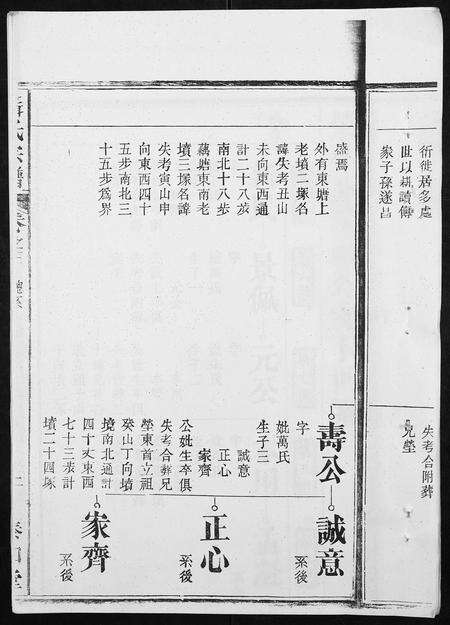 衍徙居多處
世以耕讀傳
家子孫遂昌
失考合附葬
兄塋
盛焉
外有東塘上
老墳二塚名
諱失考丑山
未向東西通
計二十八步
南北十八步
藕塘東南老
墳三塚名諱
失考寅山申
向東西四十
五步南北三
十五步為界
壽公
字
妣萬氏
生子三
誠意
正心
家齊
公妣生卒俱
失考合葬兄
塋東首立祖
癸山丁向墳
境南北通計
四十丈東西
七十三步計
墳二十四塚
誠意
系後
正心
系後
家齊
系後